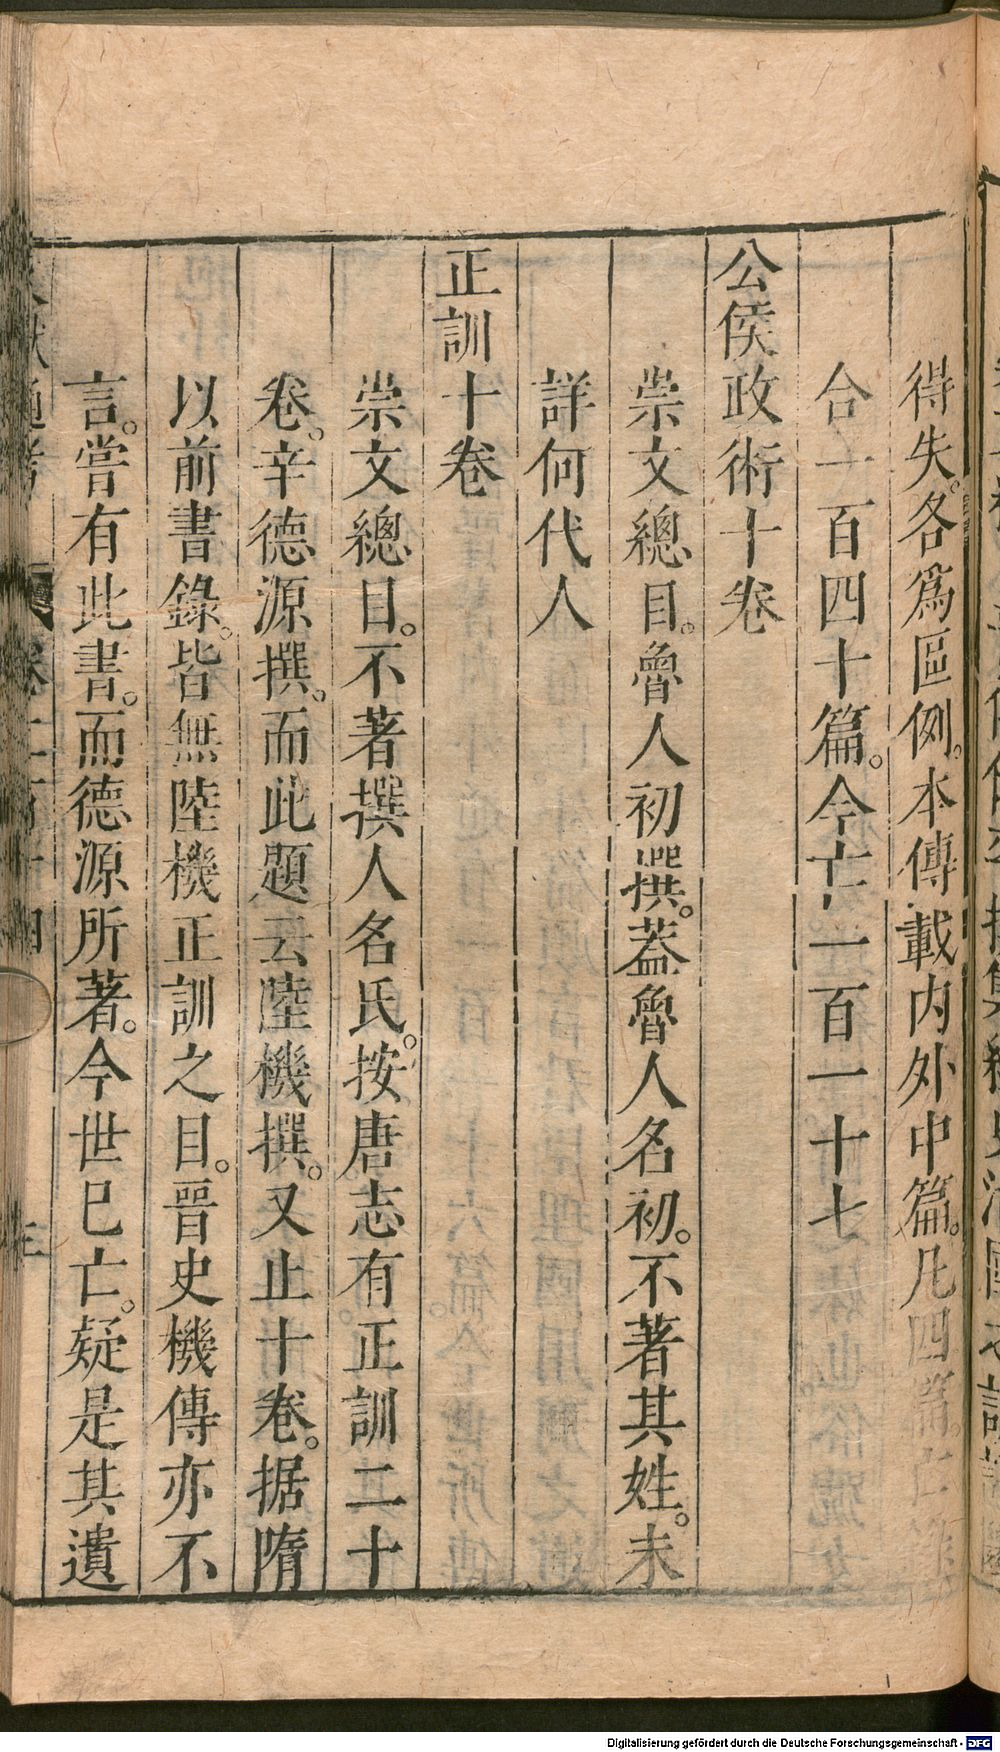 得失。各爲區例。本傳載內外中篇。凡四篇。
合一百四十篇。今亡一百一十七
公侯政術十卷
崇文總目。魯人初撰。蓋魯人名初。不著其姓。未
詳何代人
正訓十卷
崇文總目。不著撰人名氏。按唐志有正訓二十
卷。辛德源撰。而此題云陸機撰。又止十卷。据隋
以前書錄。皆無陸機正訓之目。晉史機傳亦不
言。嘗有此書。而德源所著。今世已亡。疑是其遺
通考 卷二百十四 三
Digitalisierung gefördert durch die Deutsche Forschungsgemeinschaft - DFG